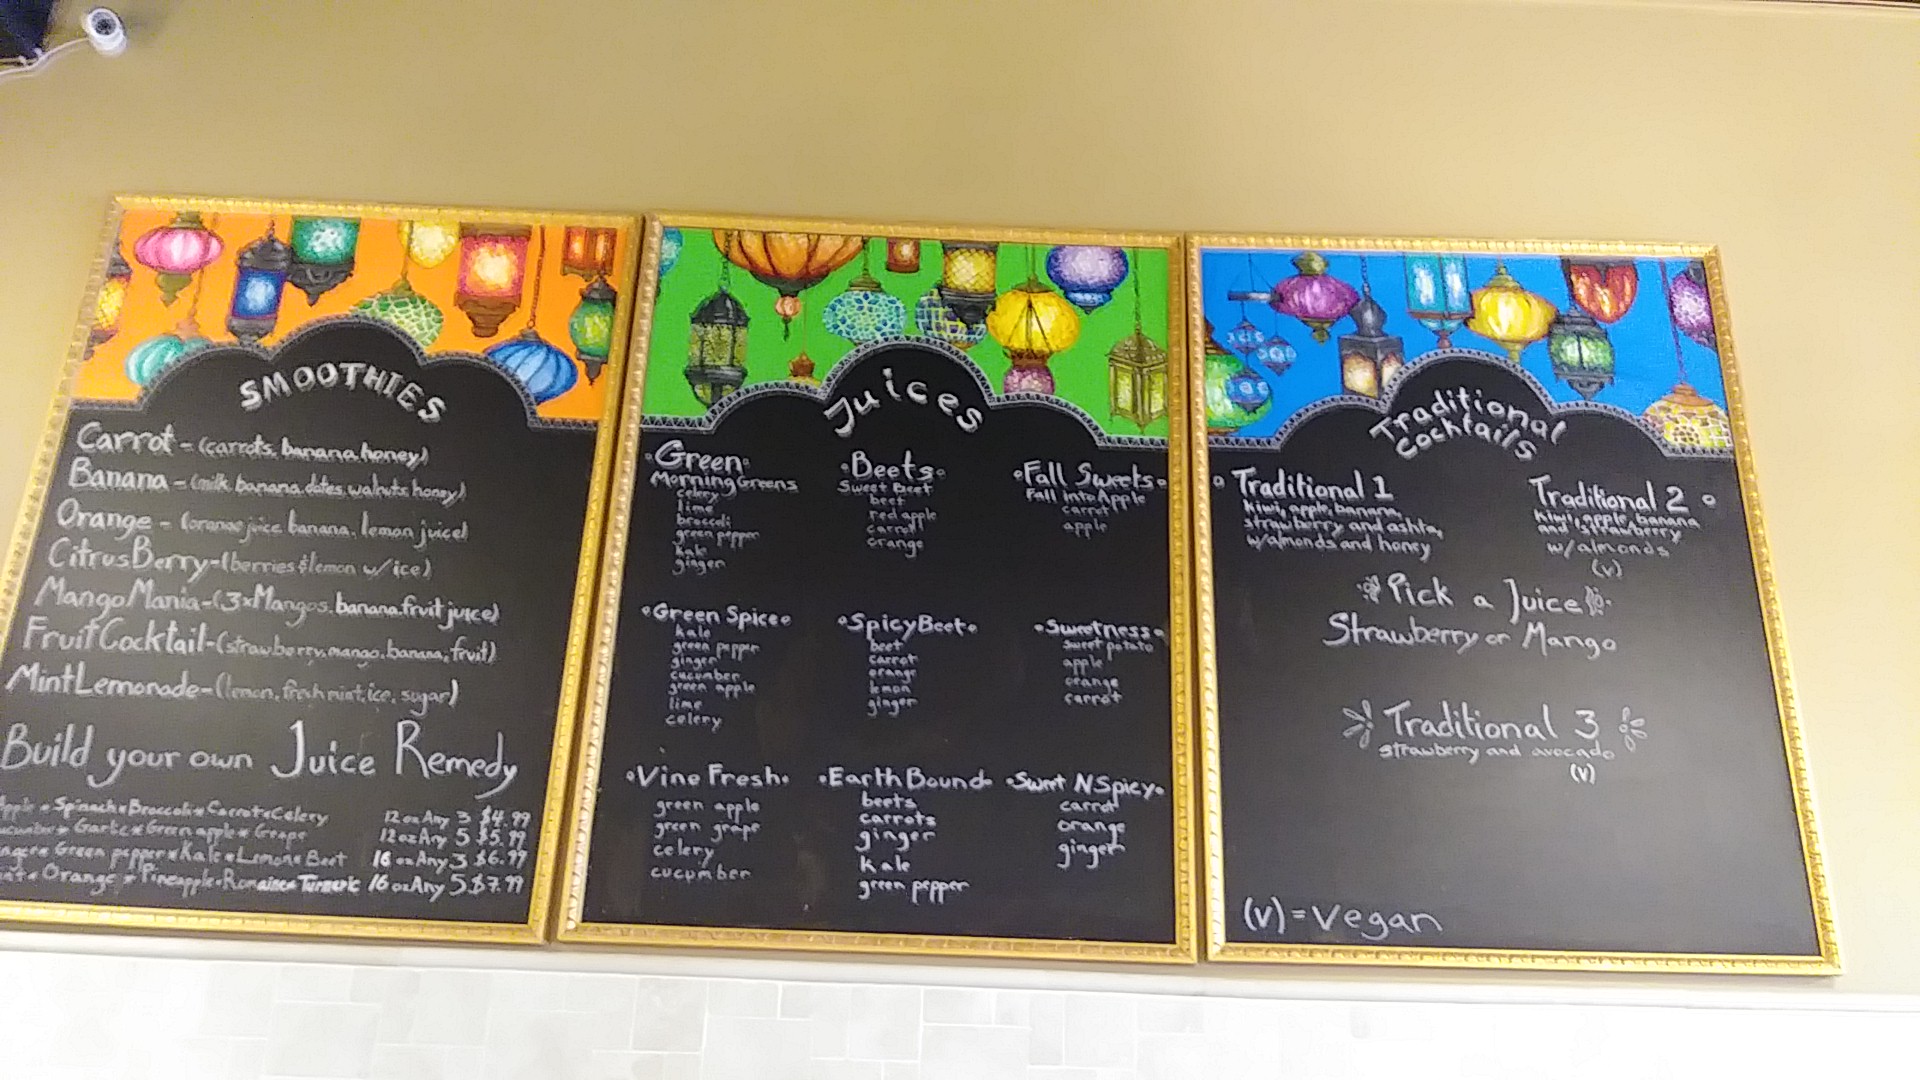 SMOOTHIES
Carrot - (carrots, banana, honey)
Banana - (milk, banana, dates, walnuts, honey)
Orange - (orange juice, banana, lemon juice)
CitrusBerry - (berries & lemon w/ice)
MangoMania - (3xMangos, banana, fruit juice)
FruitCocktail - (strawberry, mango, banana, fruit)
MintLemonade - (lemon, fresh mint, ice, sugar)
Build your own Juice Remedy
Apple * Spinach * Broccoli * Carrot * Celery 12 oz Any 3 $4.99
Garlic * Green apple * Grape 12 oz Any 5 $5.99
Green pepper * Kale * Lemon * Beet 16 oz Any 3 $6.99
Orange * Pineapple * Romaine * Turmeric 16 oz Any 5 $7.99
Juices
Green
Morning Greens
celery
lime
broccoli
green pepper
kale
ginger
Beets
Sweet Beet
beet
red apple
carrot
orange
Fall Sweets
Fall into Apple
carrot
apple
Green Spice
kale
green pepper
ginger
cucumber
green apple
lime
celery
Spicy Beet
beet
carrot
orange
lemon
ginger
Sweetness
sweet potato
apple
orange
carrot
Vine Fresh
green apple
green grape
celery
cucumber
Earth Bound
beets
carrots
ginger
kale
green pepper
Sweet N Spicy
carrot
orange
ginger
Traditional
Cocktails
Traditional 1
kiwi, apple, banana,
strawberry and ashta,
w/almonds and honey
Traditional 2
kiwi, apple, banana
and strawberry
w/almonds
(v)
Pick a Juice
Strawberry or Mango
Traditional 3
strawberry and avocado
(v)
(v) = Vegan